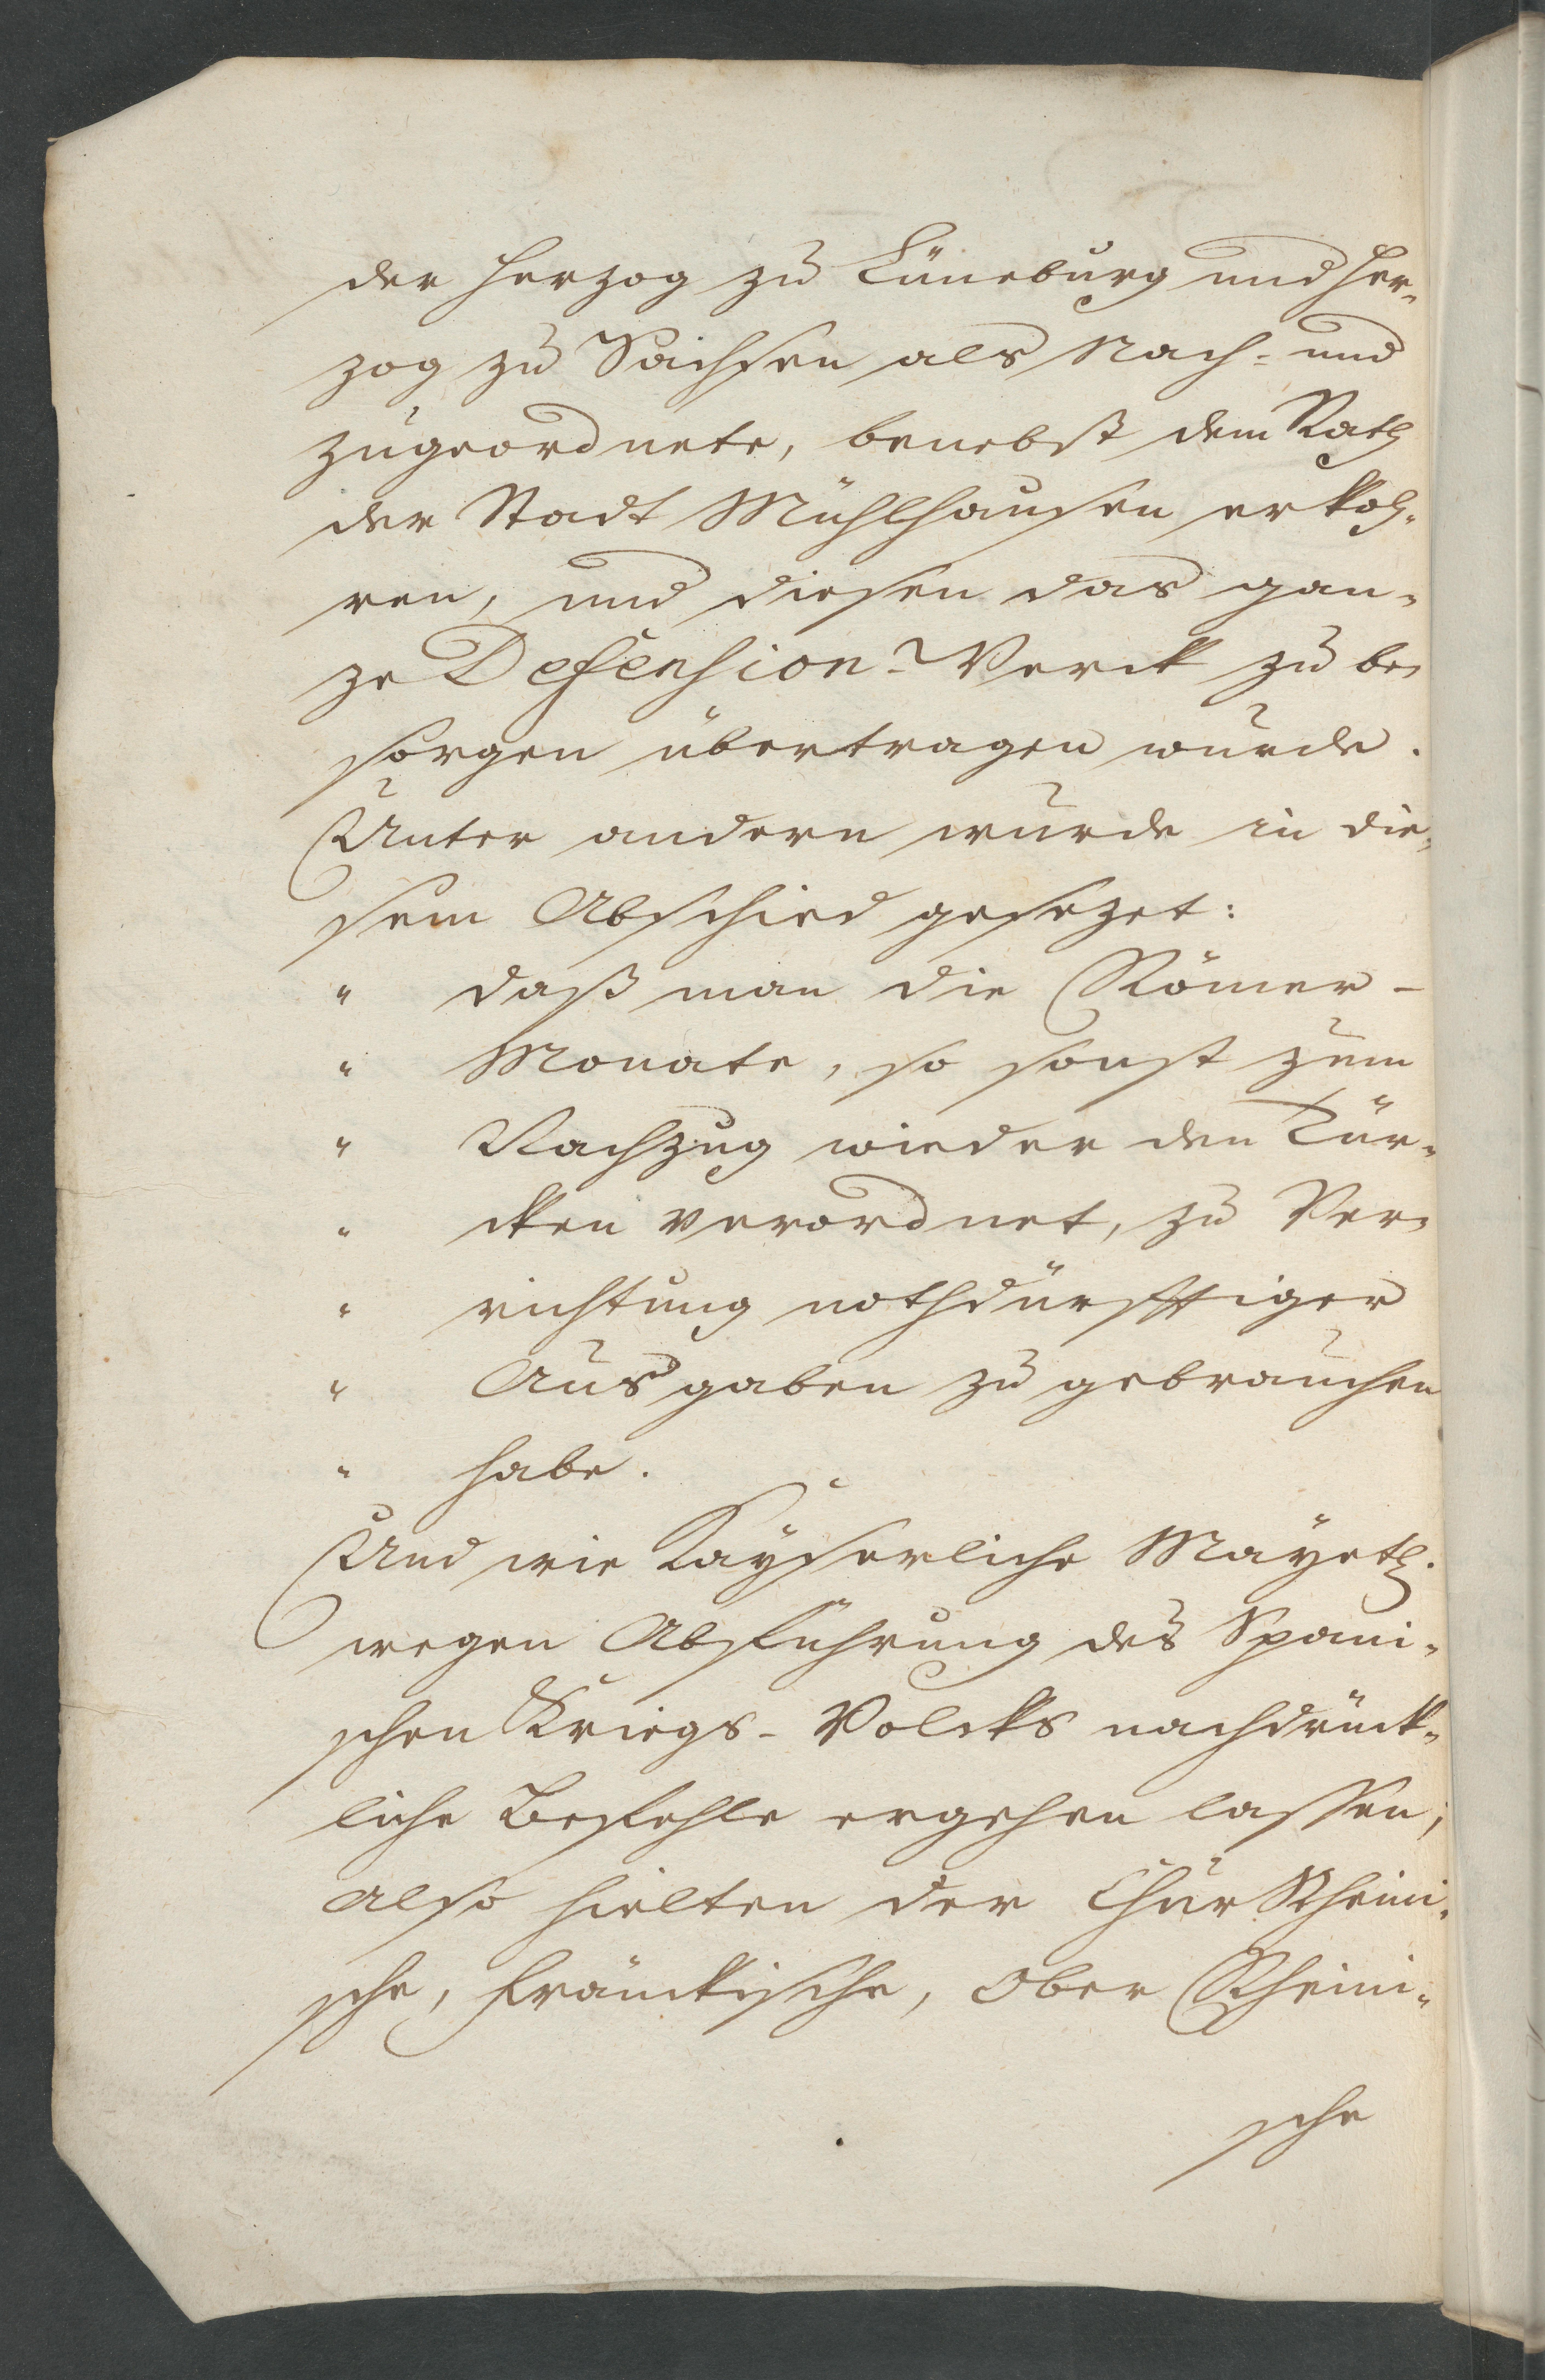 der Herzog zu Lüneburg und Her-
zog zu Sachsen als Nach- und
zugeordnete, benebst dem Rath
der Stadt Mühlhausen erkoh-
ren, und diesen das gan-
ze Defension-Werck zu be-
sorgen übertragen wurde.
Unter andern wurde in die-
sem Abschied gesezet:
" daß man die Römer-
" Monate, so sonst zum
" Nachzug wieder den Tür-
" cken verordnet, zu Ver-
" richtung nothdürfftiger
" Ausgaben zu gebrauchen
" habe.
Und wie Kayserliche Mayeth.
wegen Abführung des Spani-
schen Kriegs-Volcks nachdrück-
liche Befehle ergehen lassen;
also hielten der ChurRheini-
sche, Fränckische, Ober Rheini-
sche